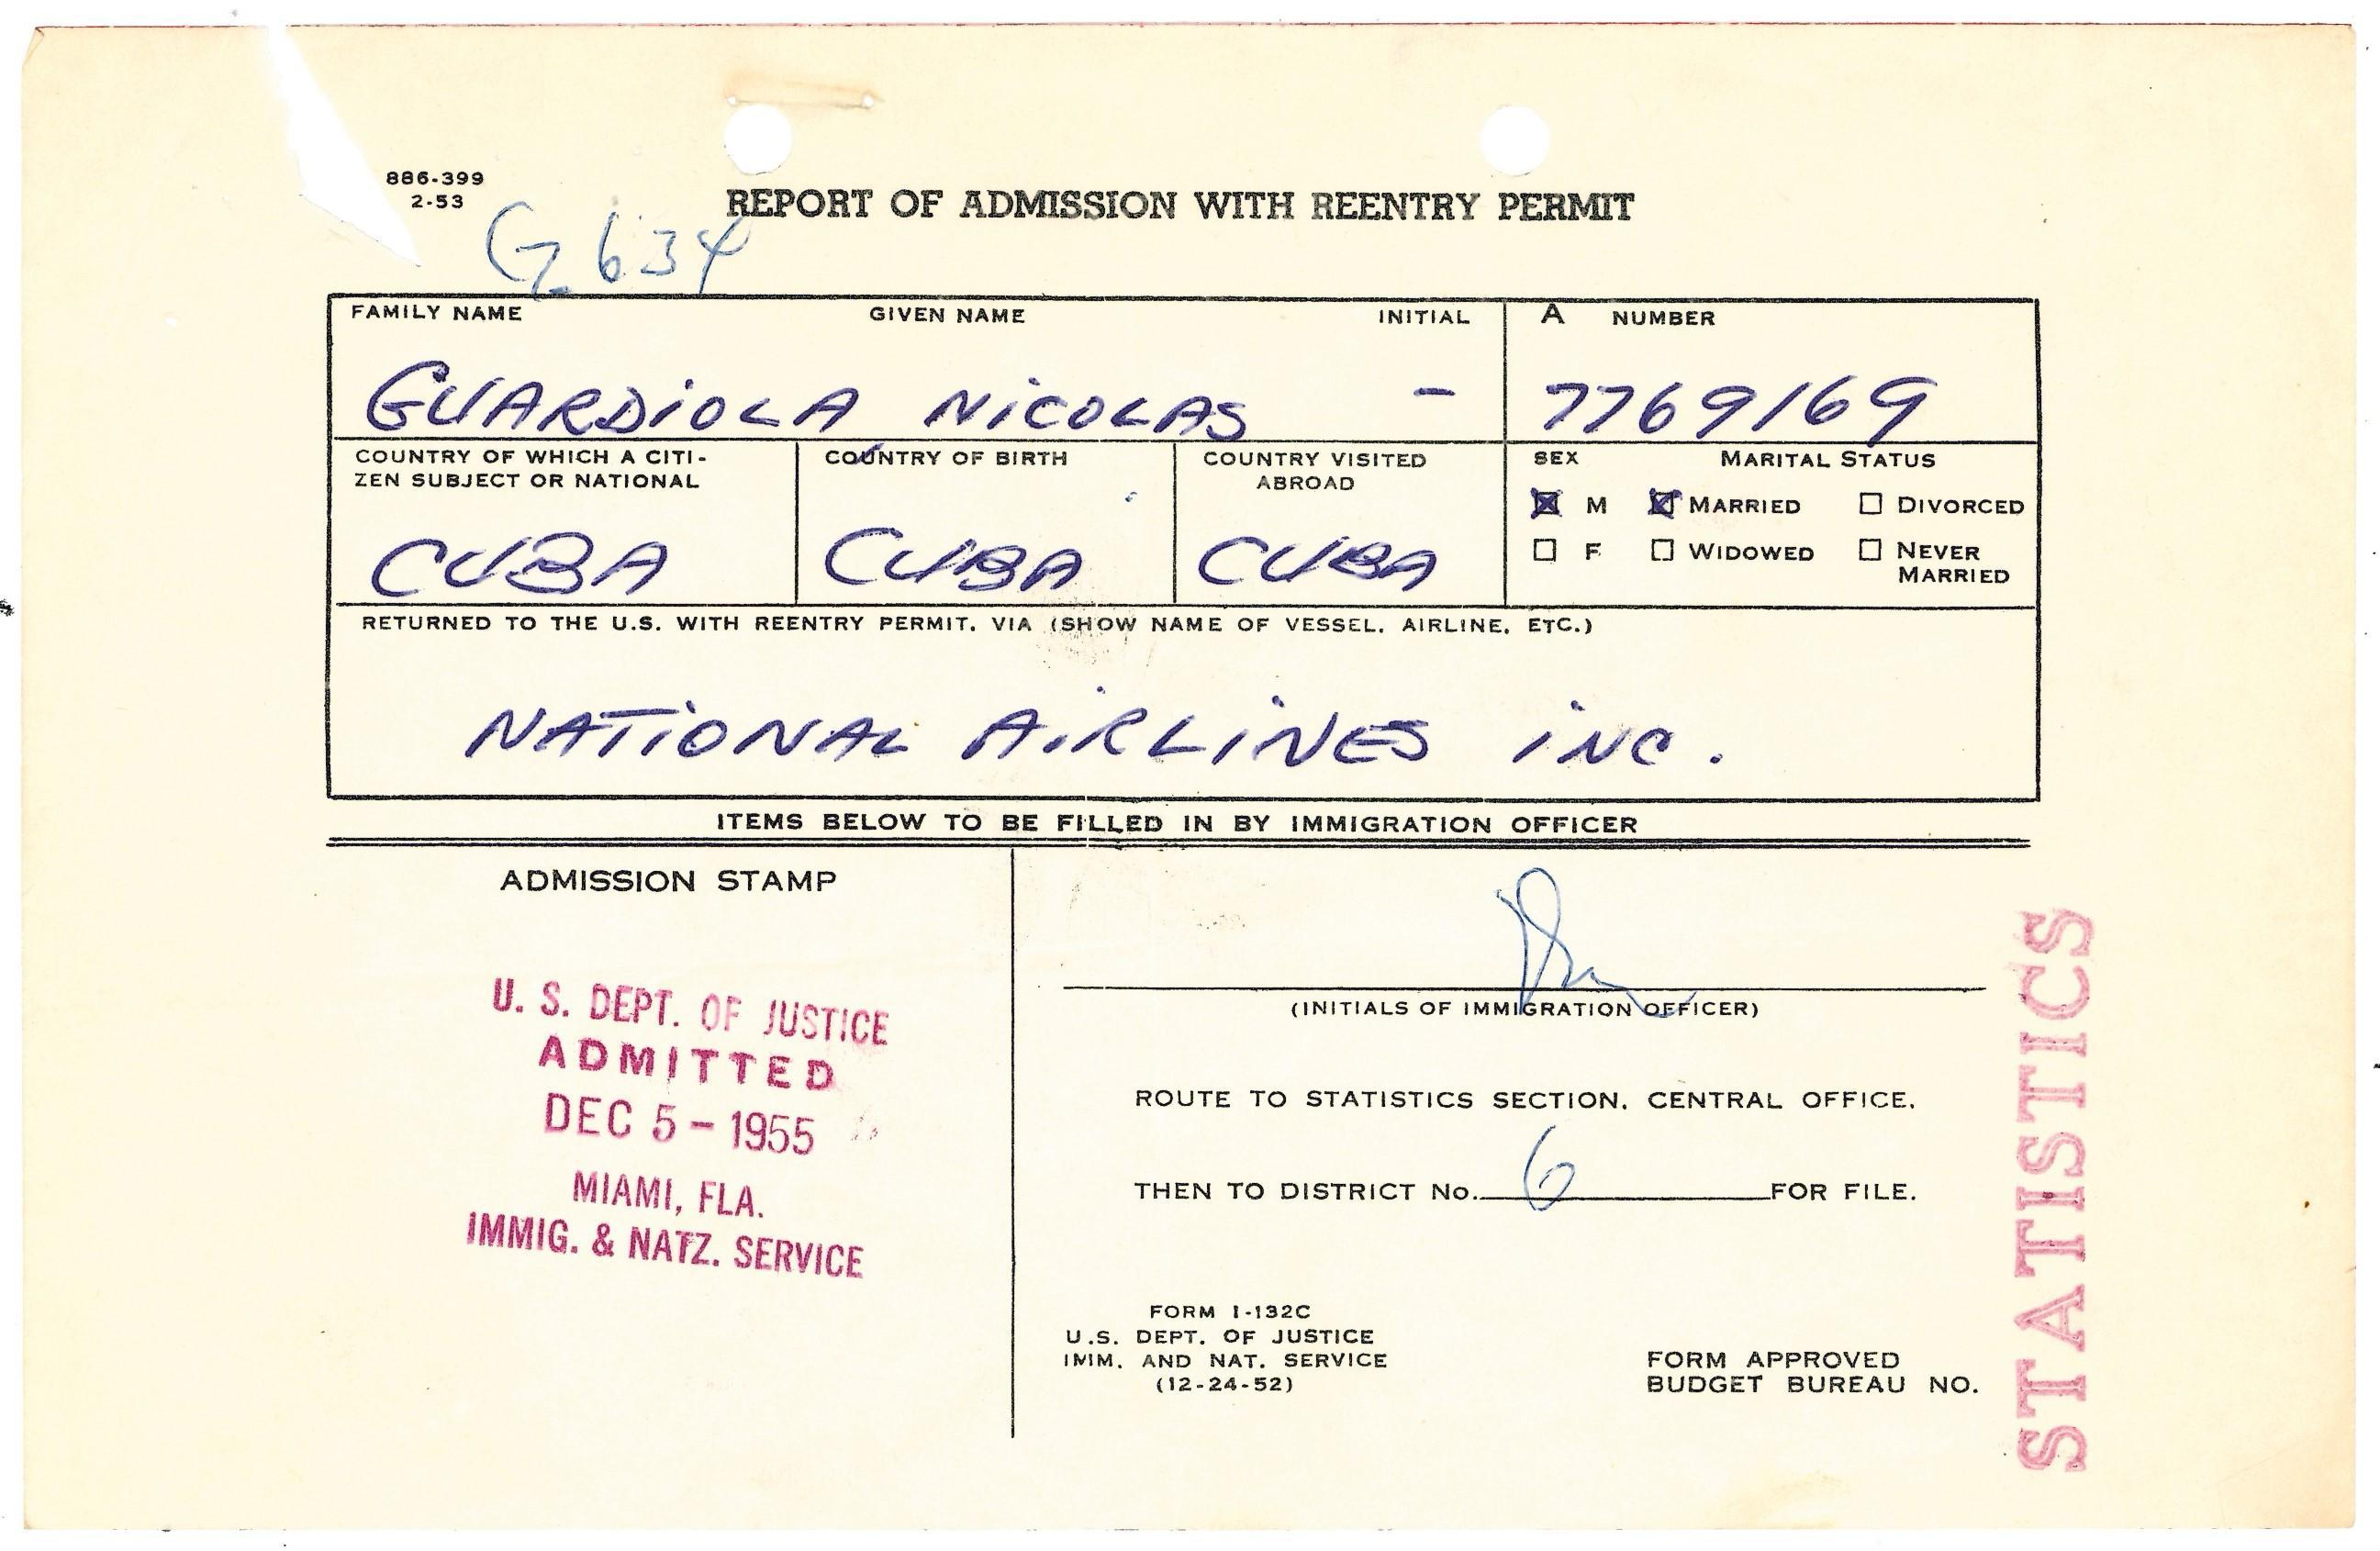 886-399
2-53
G634
REPORT OF ADMISSION WITH REENTRY PERMIT
FAMILY NAME GIVEN NAME INITIAL A NUMBER
GUARDIOLA NICOLAS - 7769169
COUNTRY OF WHICH A CITI-
ZEN SUBJECT OR NATIONAL
CUBA
COUNTRY OF BIRTH
CUBA
COUNTRY VISITED
ABROAD
CUBA
SEX MARITAL STATUS
☒ M ☒ MARRIED ☐ DIVORCED
☐ F ☐ WIDOWED ☐ NEVER
MARRIED
RETURNED TO THE U.S. WITH REENTRY PERMIT, VIA (SHOW NAME OF VESSEL, AIRLINE, ETC.)
NATIONAL AIRLINES INC.
ITEMS BELOW TO BE FILLED IN BY IMMIGRATION OFFICER
ADMISSION STAMP
U. S. DEPT. OF JUSTICE
ADMITTED
DEC 5 - 1955
MIAMI, FLA.
IMMIG. & NATZ. SERVICE
(INITIALS OF IMMIGRATION OFFICER)
ROUTE TO STATISTICS SECTION, CENTRAL OFFICE,
THEN TO DISTRICT No. 6 FOR FILE.
FORM I-132C
U.S. DEPT. OF JUSTICE
IMM. AND NAT. SERVICE
(12-24-52)
FORM APPROVED
BUDGET BUREAU NO.
STATISTICS